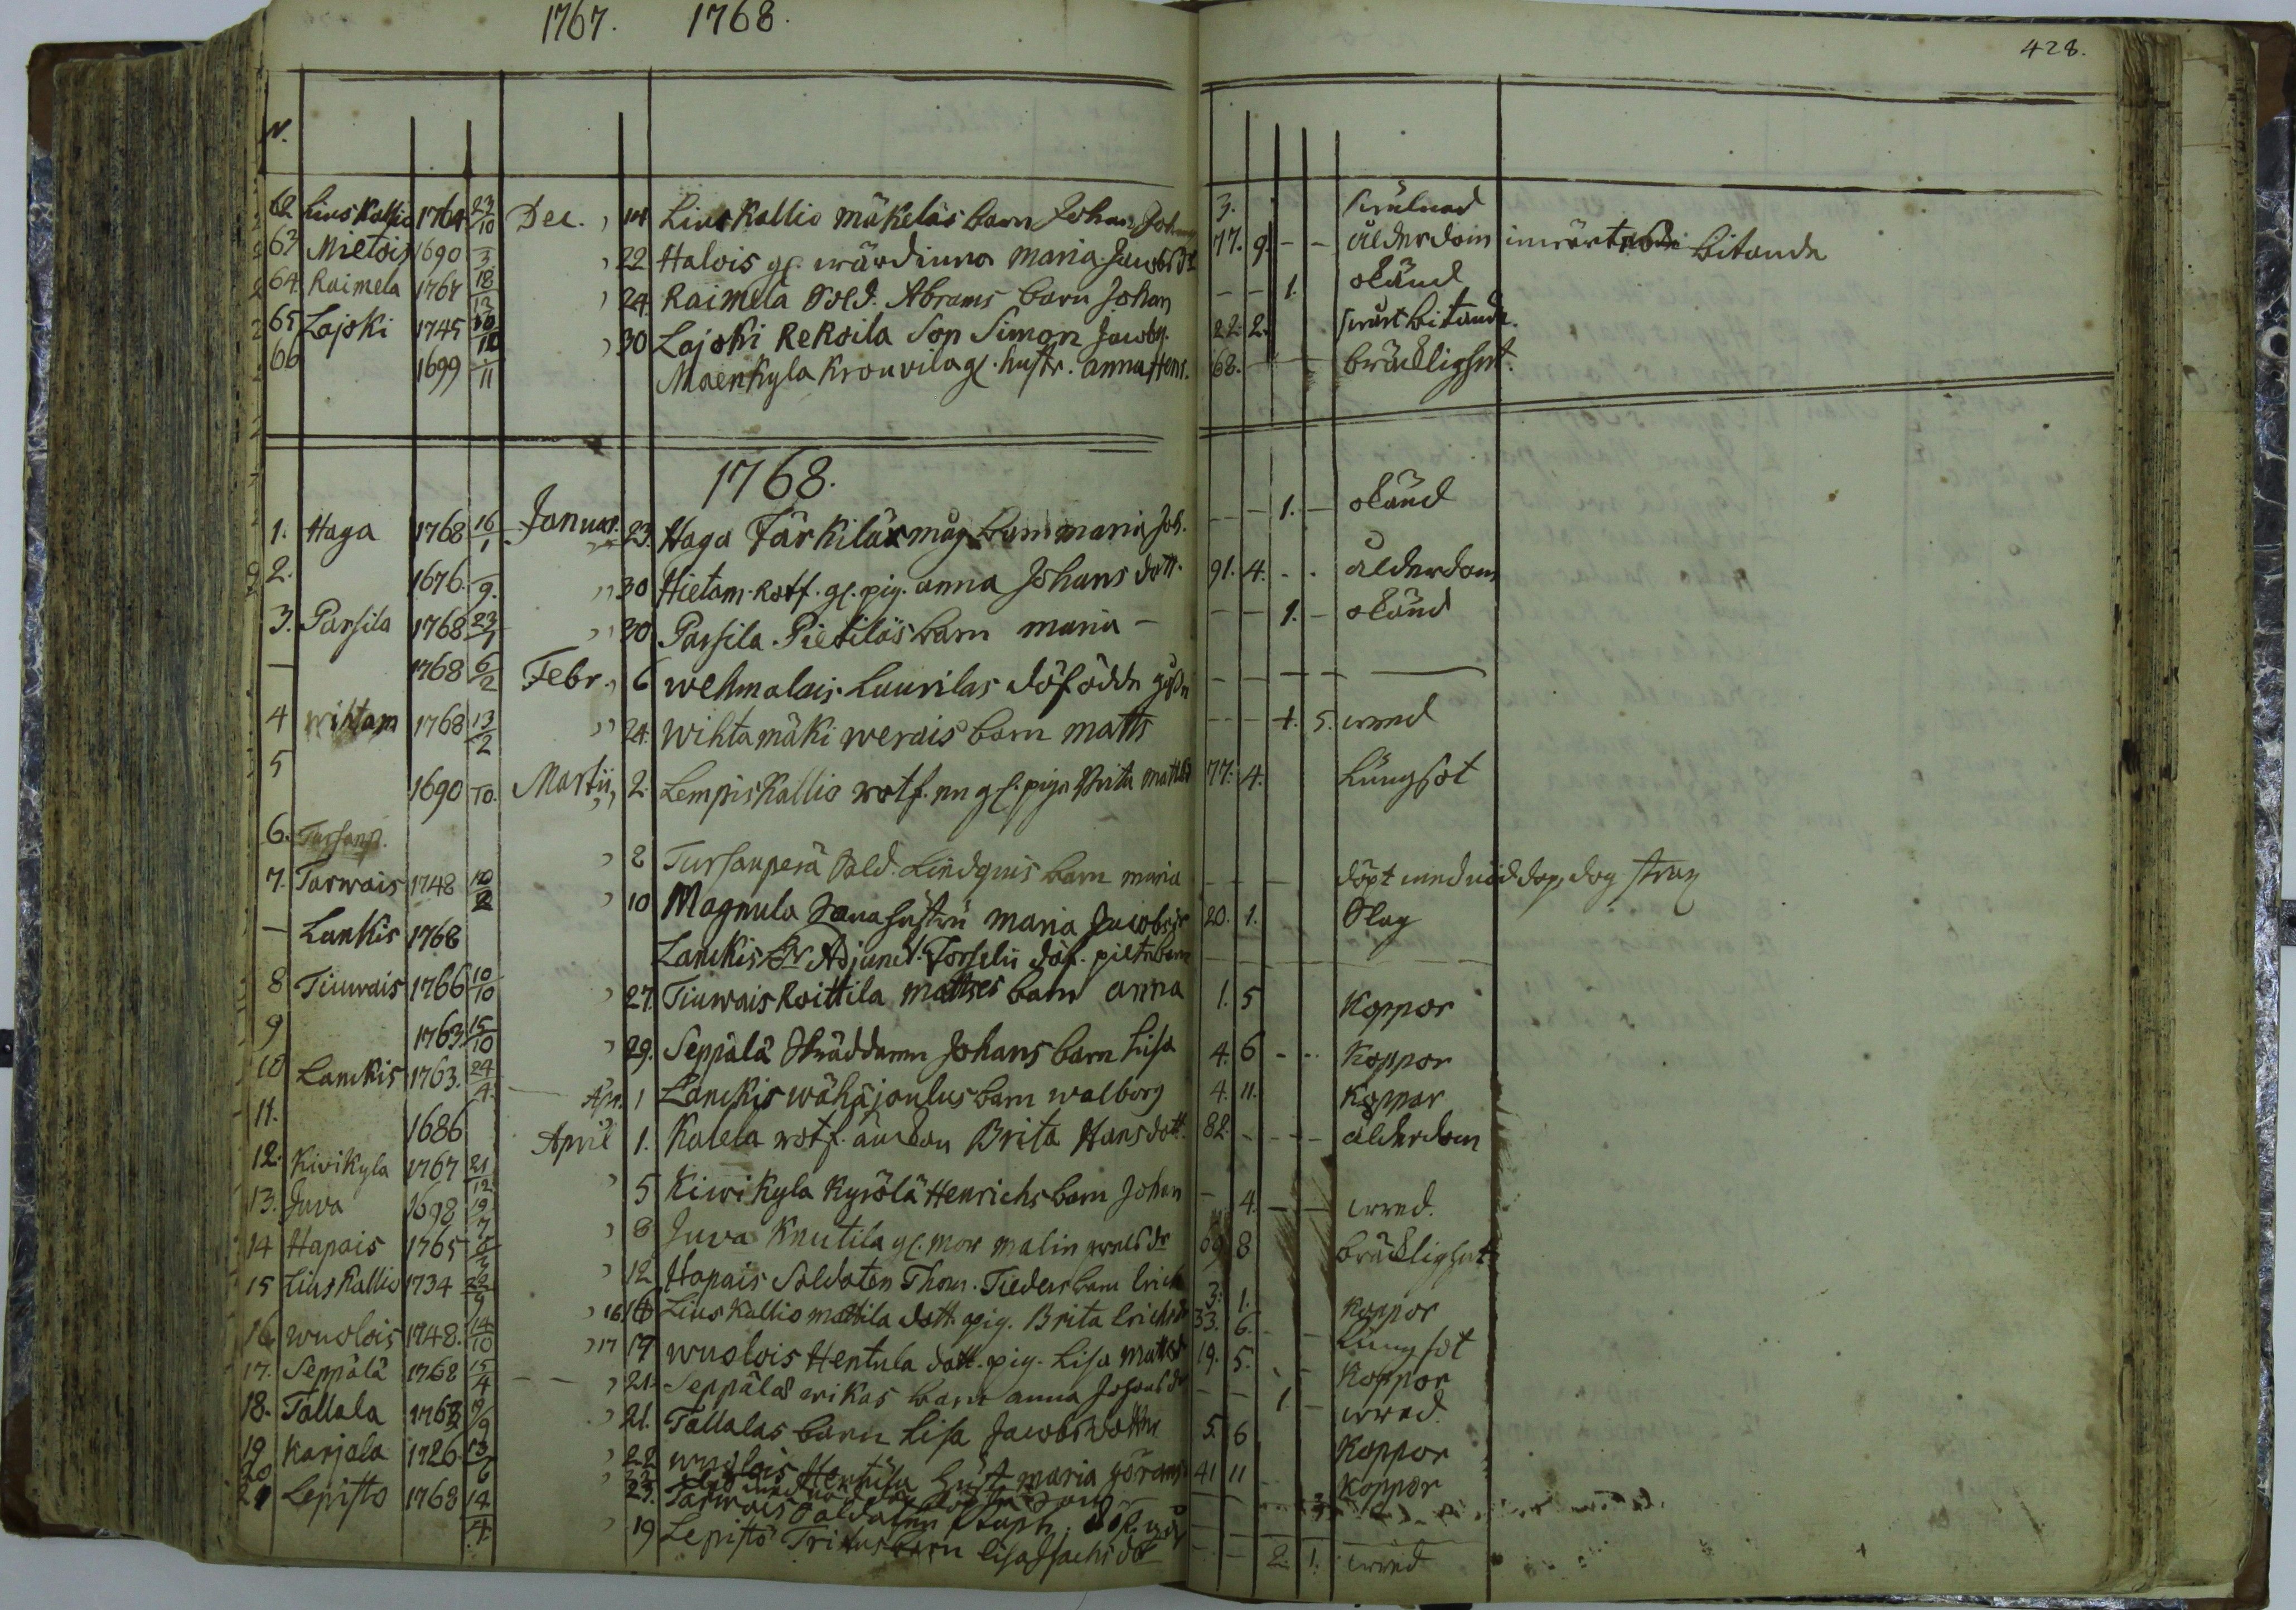 1767. 1768.
428.
N.
62 Liuskallio 1764 23/10 Dec. 14 Liuskallio mäkeläs barn Johan 3.
63 Mietois 1690 3 22 Halois gl. wärdinna Maria Jacobsdr 77. 9. - - ålderdom bitande
64. Raimela 1767 18/12 24. Raimela Sold. Abrams barn Johan - - 1. okänd
65 Lajoki 1745 10/10 30 Lajoki Rekoila Son Simon Jacobs. 22. 2. bitande.
66 1699 11 Maenkyla Krouvila gl. hustr. Anna Henr. 68. - - bräcklighet.
1768.
1. Haga 1768 16/1 Januar. 23. Haga Tärkiläs måg barn maria Joh. - - 1. - okänd
2. 1676. 9. 30 Hietam. rotf. gl. pig. anna Johans dott. 91. 4. - - ålderdom
3. Parsila 1768 23/1 30 Parsila Pietiläs barn maria - - - 1. - okänd
- 1768 6/2 Febr. 6 wehmalais Laurilas döfödde - - - -
4 wihtam 1768 13/2 24. wihtamäki werais barn matts - - 1. 5. wred
5 1690 10. Martii 2. Lempiskallio rotf. gl. piga Brita matts 77. 4. Lungsot
6. Tursanp. 8 Tursanperä Sold. Lindquis barn maria - - - döpt med nöd dop, dog strax
7. Tarwais 1748 10/2 10 Magnula hustru maria Jacobsdr 20. 1. Slag
- Lankis 1768 Lanckis Hr Adjunct. Forselii döf. piltebarn - - -
8 Tiuwais 1766 10/10 27. Tiuwais Koittila mattses barn anna 1. 5 Koppor
9 1763. 15/10 29. Seppälä Skräddaren Johans barn Lisa 4. 6 - - Koppor
10 Lanckis 1763. 24/4. Apr. 1 Lanckis wähäjoulus barn walborg 4. 11. Koppor
11. 1686 April 1. Kalela rotf. änckan Brita Hansdott. 82. - - - ålderdom
12. Kivikyla 1767 21/12 5 Kiwikyla Kyrölä Henrichs barn Johan - 4. - - wred.
13. Juva 1698 19/7 8 Juva Knutila gl. mor malin dr 69. 8 bräcklighet
14 Hapais 1765 12 Hapais Soldaten Thom. Tieders barn Erich 3. 1. Koppor
15 Liuskallio 1734 22/9 16. Liuskallio mattila dott. pig. Brita Erichsdr 33. 6. - - Lungsot
16 wuolois 1748. 14/10 17 17 wuolois Hentula dott. pig. Lisa mattsdr 19. 5. - - Koppor
17. Seppälä 1768 15/4 21. Seppälä erikas barn anna Johansdr - - 1. - wred.
18. Tallala 1762 9/9 21. Tallalas barn Lisa Jacobsdotter 5. 6 Koppor
19 Karjala 1726 13/6 22 wuolois Hentula hust. maria görans 41 11 Koppor
20 23. Tarwais Soldaten Staph.
21 Lepisto 1768 14./4 19 Lepistö barn Lisa Isachsdr - - 2. 1. wred